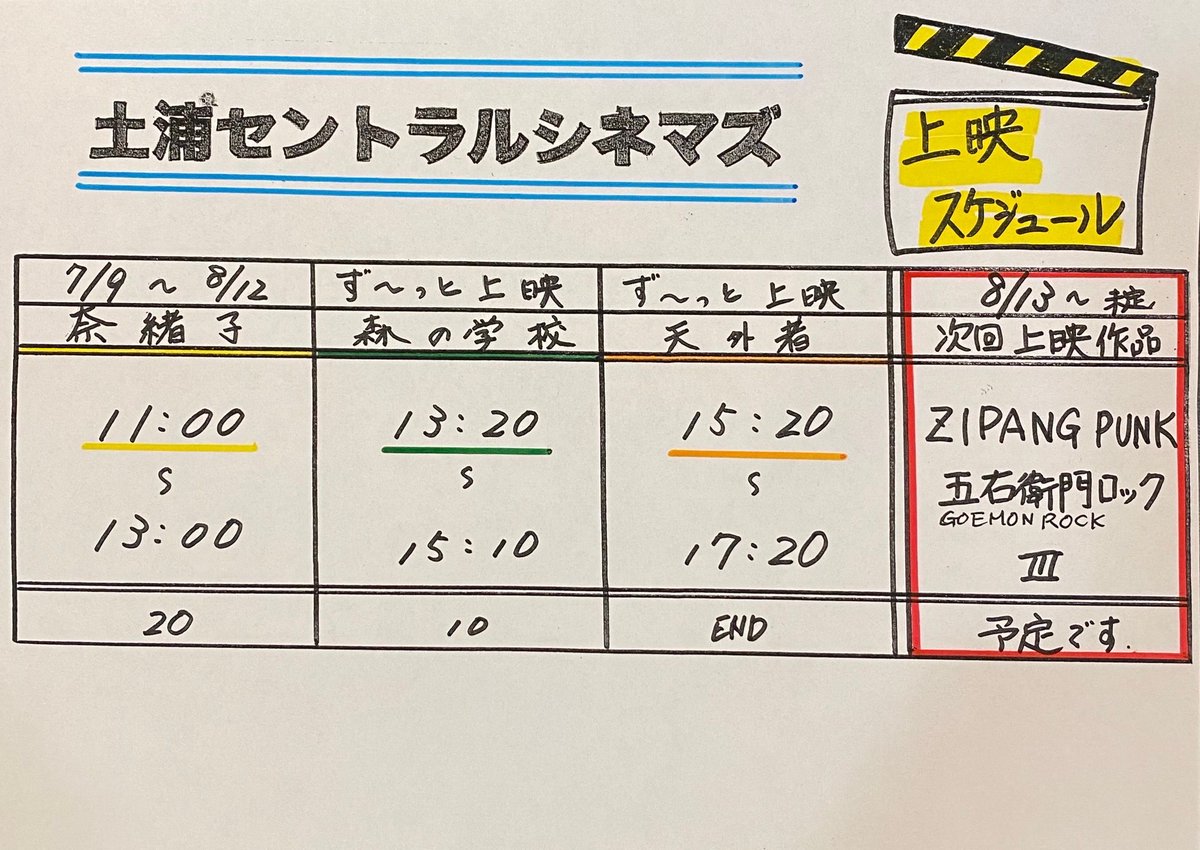 土浦セントラルシネマズ
上映
スケジュール
7/9 ~ 8/12
ず~っと上映
ず~っと上映
8/13~未定
奈緒子
森の学校
天外者
次回上映作品
11:00
S
13:00
13:20
S
15:10
15:20
S
17:20
ZIPANG PUNK
五右衛門ロック
GOEMON ROCK
III
20
10
END
予定です.